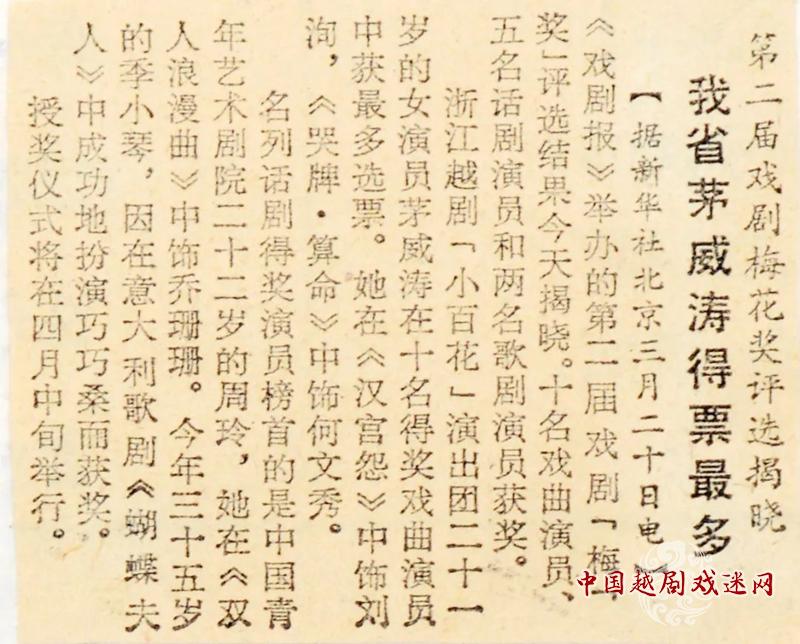 第二届戏剧梅花奖评选揭晓
我省茅威涛得票最多
【据新华社北京三月二十日电】
《戏剧报》举办的第二届戏剧「梅花
奖」评选结果今天揭晓。十名戏曲演员、
五名话剧演员和两名歌剧演员获奖。
浙江越剧「小百花」演出团二十一
岁的女演员茅威涛在十名得奖戏曲演员
中获最多选票。她在《汉宫怨》中饰刘
洵，《哭牌·算命》中饰何文秀。
名列话剧得奖演员榜首的是中国青
年艺术剧院二十二岁的周玲，她在《双
人浪漫曲》中饰乔珊珊。今年三十五岁
的季小琴，因在意大利歌剧《蝴蝶夫
人》中成功地扮演巧巧桑而获奖。
授奖仪式将在四月中旬举行。
中国越剧戏迷网